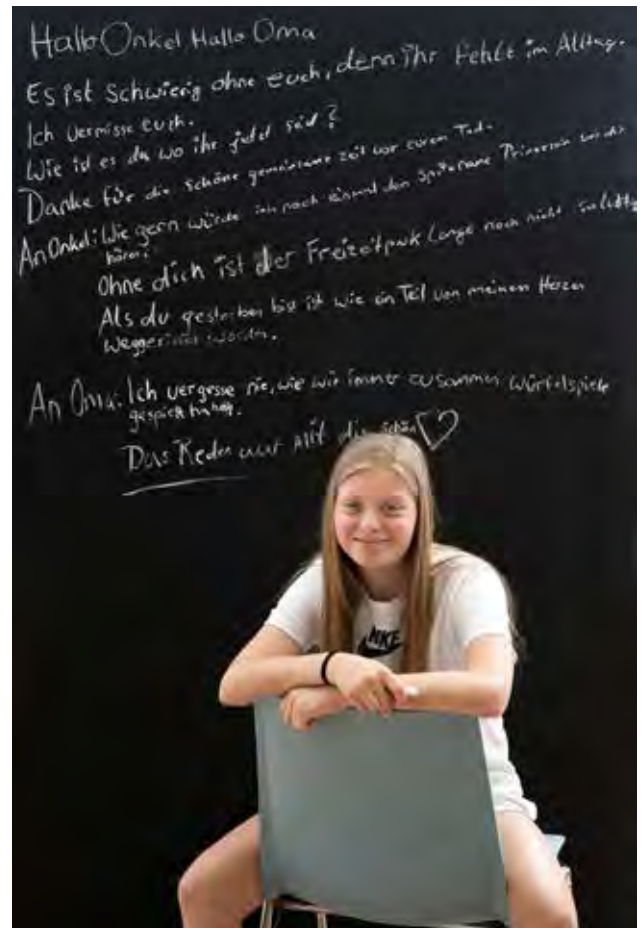 Hallo Onkel, Hallo Oma
Es ist schwierig ohne euch, denn ihr fehlt im Alltag.
Ich vermisse euch.
Wie ist es da wo ihr jetzt seid?
Danke für die schöne gemeinsame Zeit vor eurem Tod.
An Onkel: Wie gern würde ich noch einmal den Prinzessin
hören.
Ohne dich ist der Freizeitpark lange noch nicht so
Als du gestorben bist ist wie ein Teil von meinem Herzen
weggerissen worden.
An Oma: Ich vergesse nie, wie wir immer zusammen Würfelspiele
gespielt haben.
Das Reden war mit dir schön
NIKE